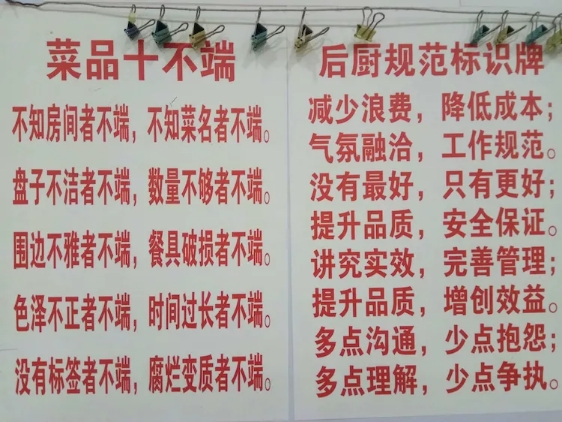 菜品十不端
不知房间者不端，不知菜名者不端。
盘子不洁者不端，数量不够者不端。
围边不雅者不端，餐具破损者不端。
色泽不正者不端，时间过长者不端。
没有标签者不端，腐烂变质者不端。
后厨规范标识牌
减少浪费，降低成本；
气氛融洽，工作规范。
没有最好，只有更好；
提升品质，安全保证。
讲究实效，完善管理；
提升品质，增创效益。
多点沟通，少点抱怨；
多点理解，少点争执。